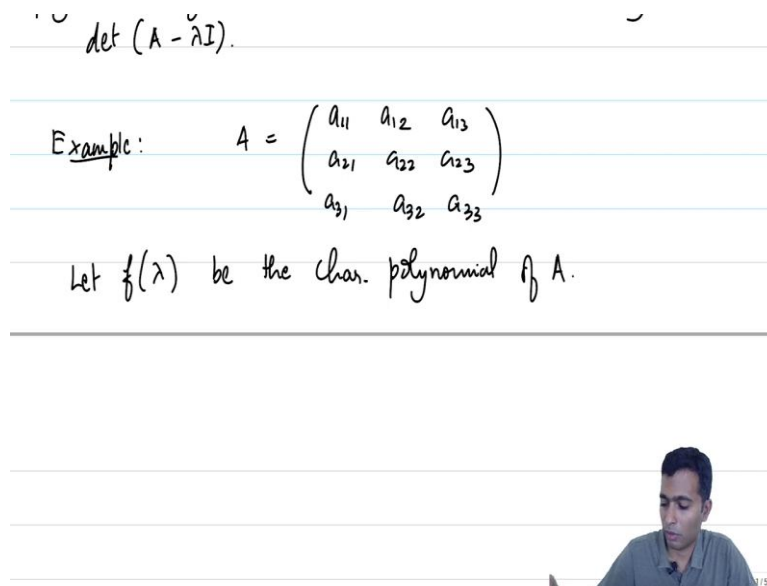 det (A - λI).
Example: A = ( a₁₁ a₁₂ a₁₃
a₂₁ a₂₂ a₂₃
a₃₁ a₃₂ a₃₃ )
Let f(λ) be the char. polynomial of A.